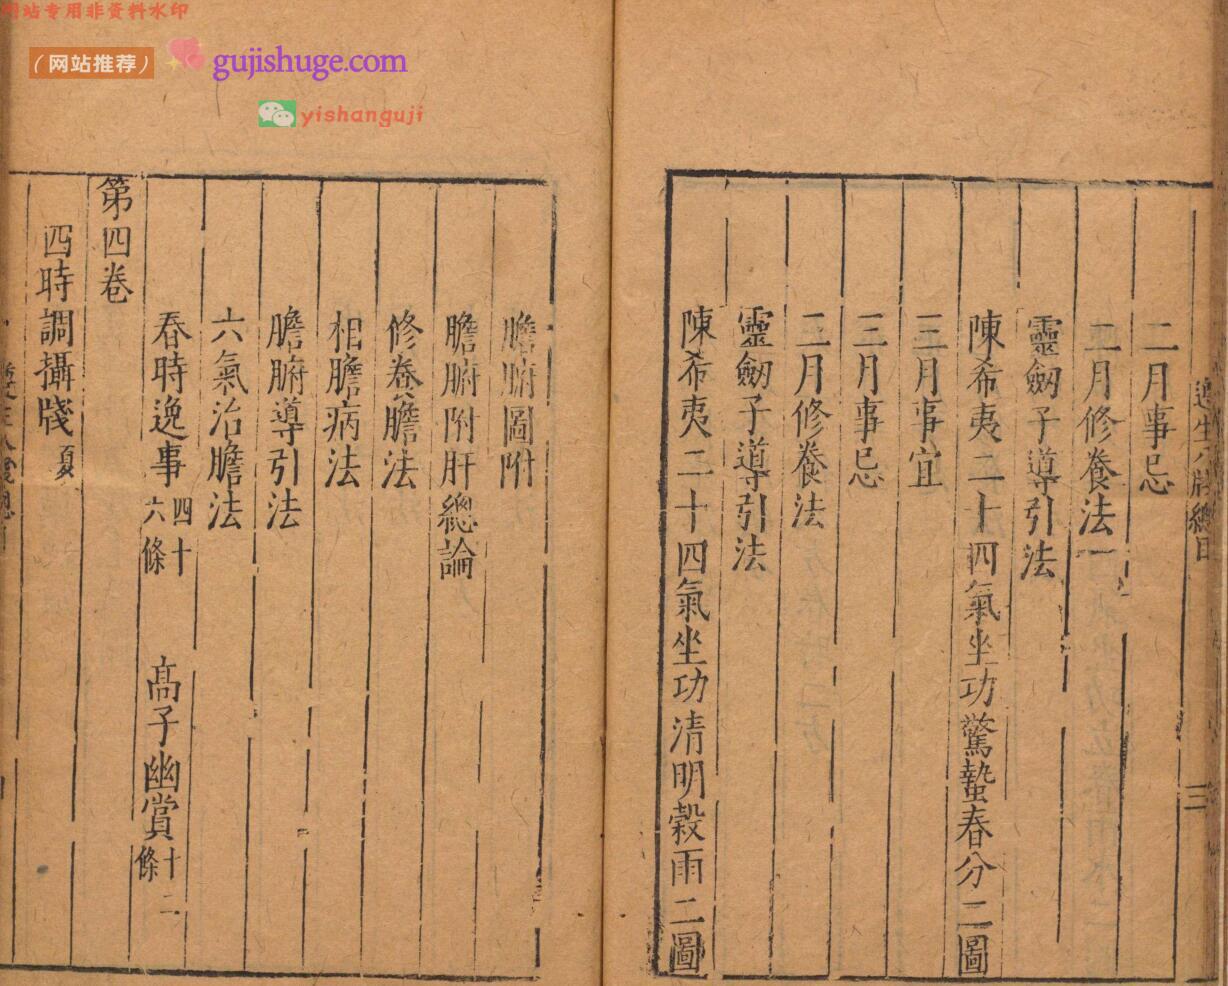 网站专用非资料水印
（网站推荐）
gujishuge.com
yishanguji
遵生八牋總目
三
二月事忌
二月修養法
靈劒子導引法
陳希夷二十四氣坐功驚蟄春分二圖
三月事宜
三月事忌
三月修養法
靈劒子導引法
陳希夷二十四氣坐功清明穀雨二圖
膽腑圖附
膽腑附肝總論
修養膽法
相膽病法
膽腑導引法
六氣治膽法
春時逸事四十六條 高子幽賞十二條
第四卷
四時調攝牋夏